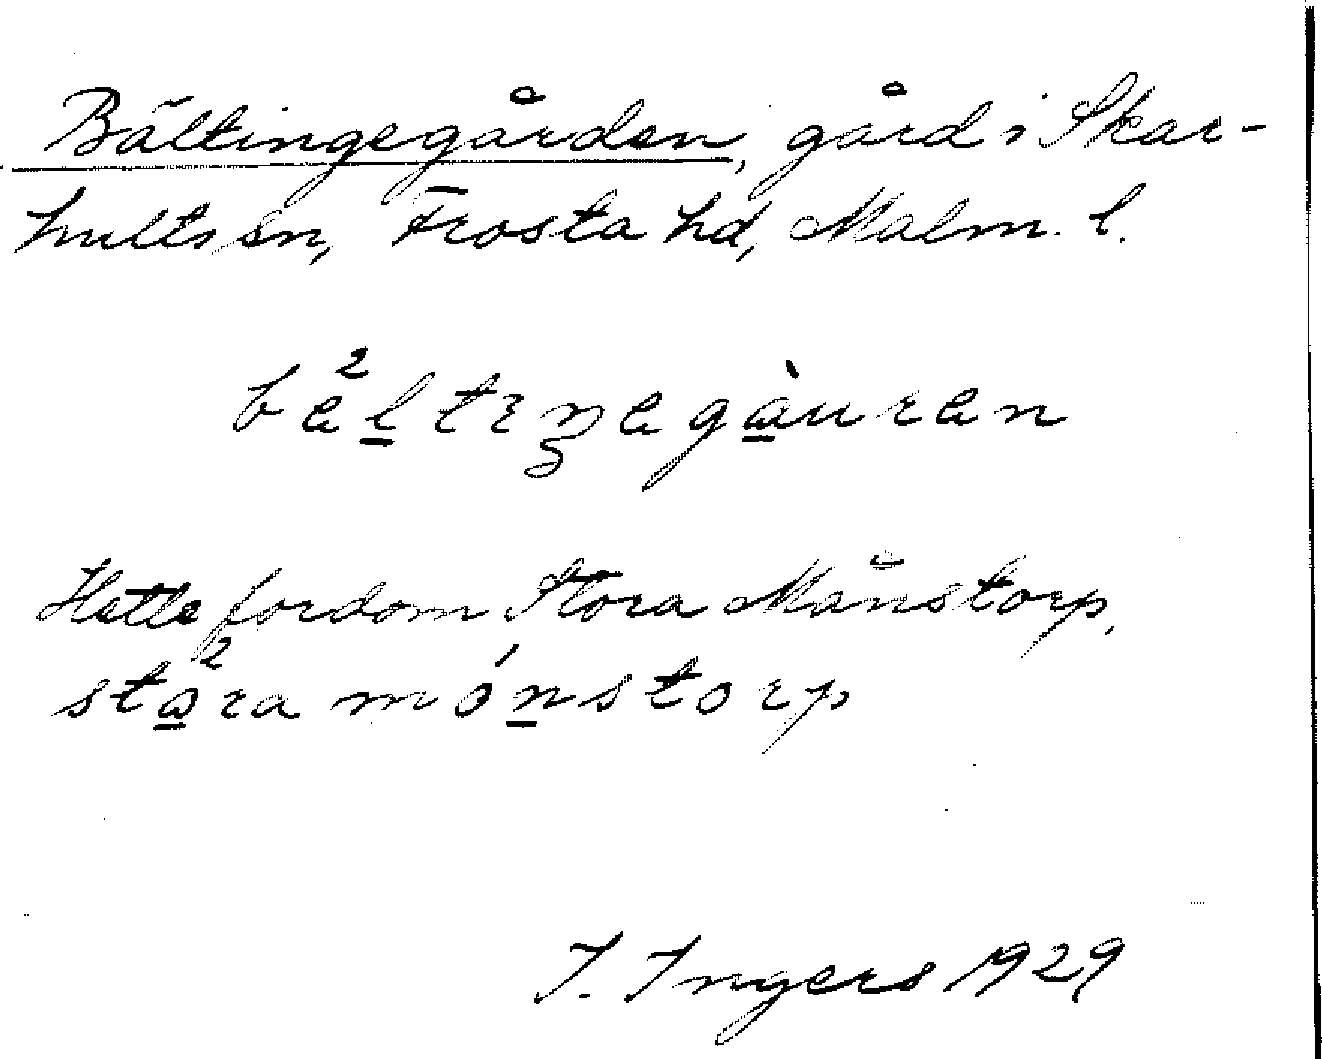 Bältingegården, gård i Skar-
hults sn, Frosta hd, Malm. l.
bä²ltıŋegàuren
Hette fordom Stora Månstorp,
stɷ²ra mónstorp
I. Ingers 1929